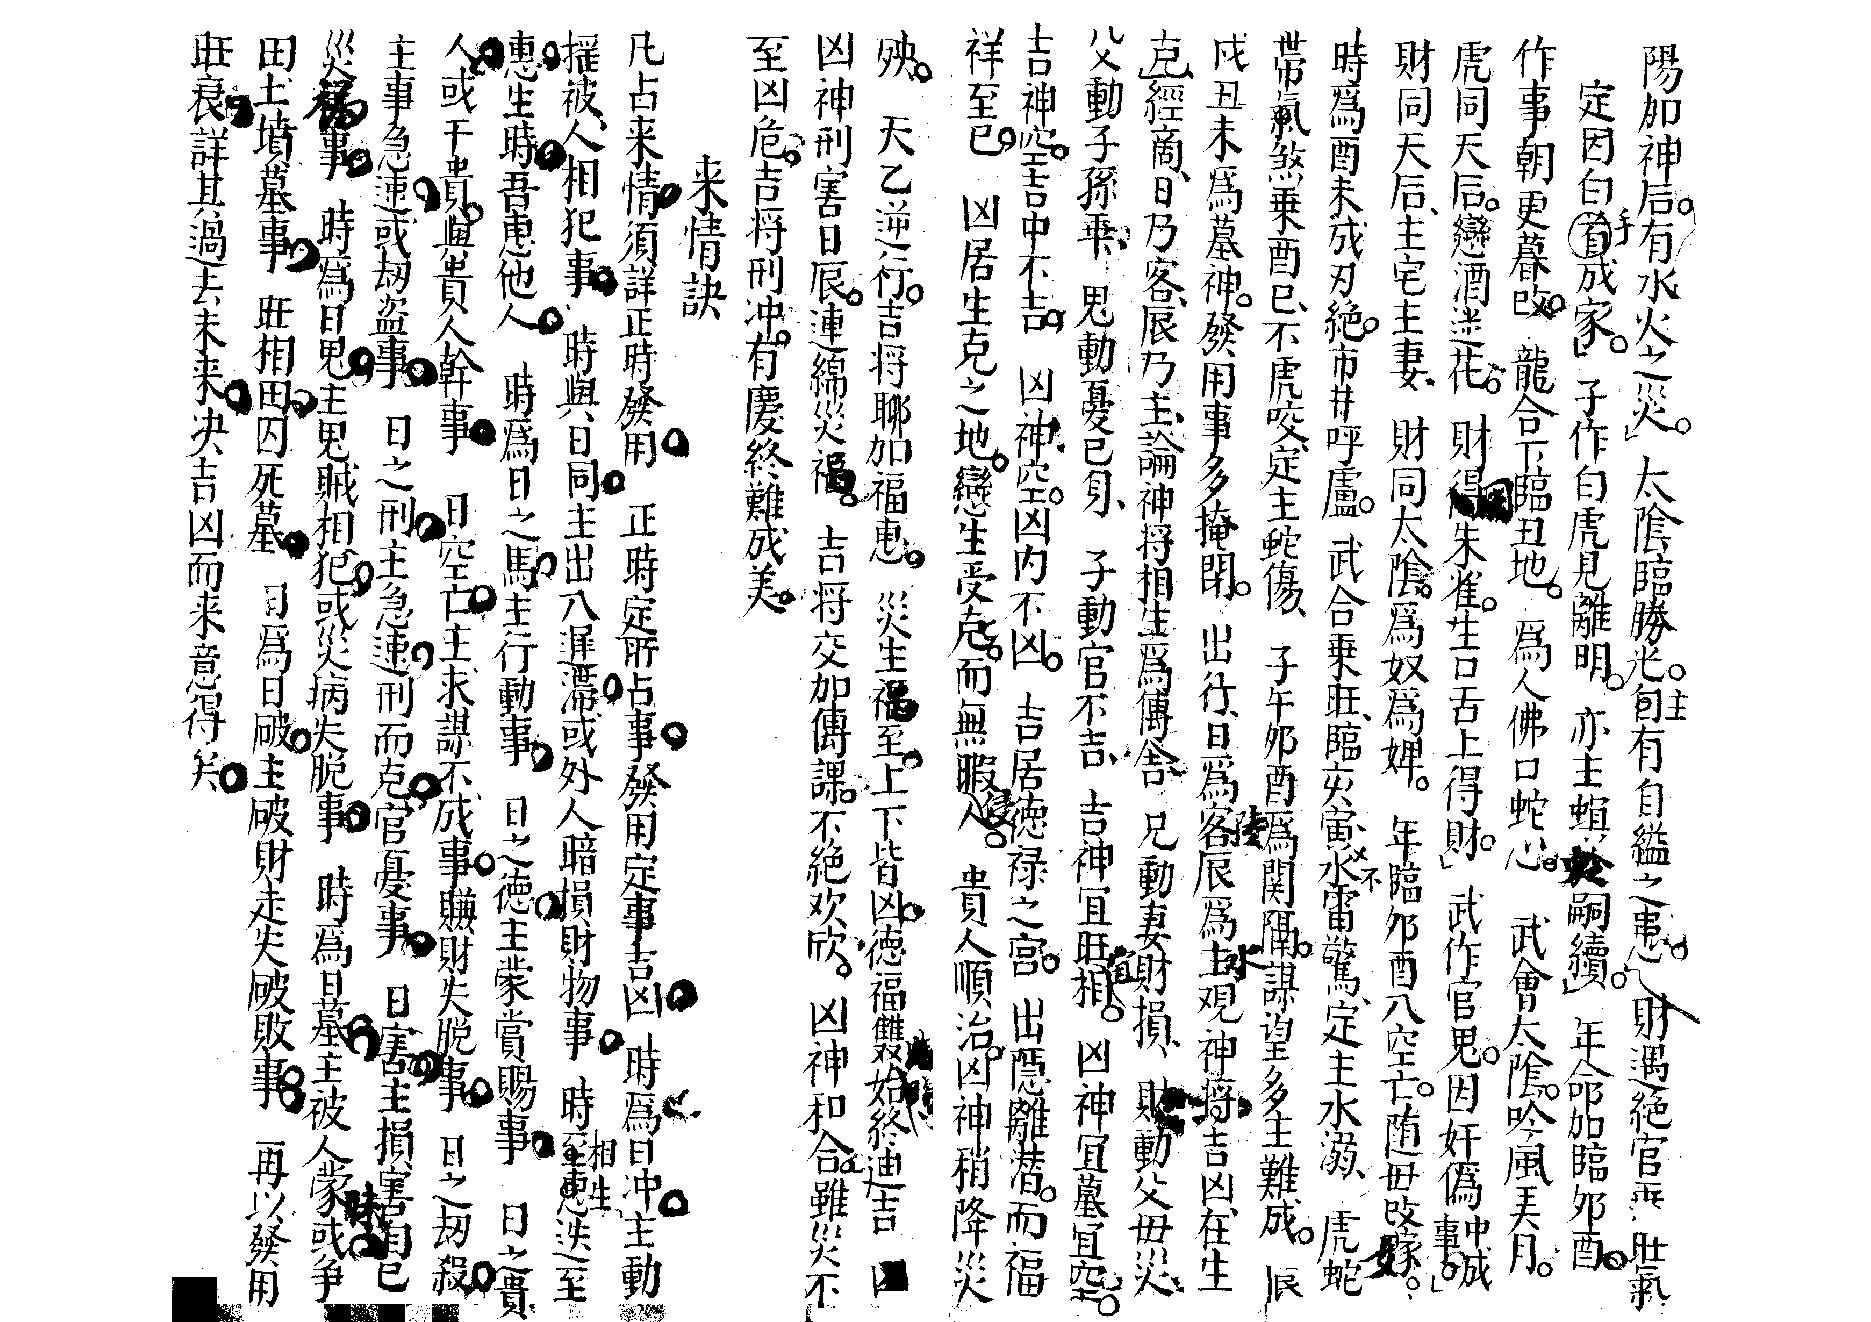 陽加神后有水火之災太陰臨勝光旬有自縊之患財遇絕官無旺氣
定因白手成家子作白虎見離明亦主螟蛉嗣續年命加臨卯酉
作事朝更暮改龍合下臨丑地爲人佛口蛇心武會太陰吟風弄月
虎同天后戀酒迷花財得朱雀生口舌上得財武作官鬼因奸偽冲成事
財同天后主宅主妻財同太陰爲奴爲婢年臨卯酉八空亡随母改嫁
時爲酉未成刃絕市井呼盧武合乗旺臨亥寅水雷驚定主水溺虎蛇
帯氣煞乗酉巳不虎咬定主蛇傷子午夘酉爲関隔謀望多主難成辰
戌丑未爲墓神發用事多掩閉出行日爲客辰爲主观神將吉凶在生
克經商日乃客辰乃主論神将相生爲傳舎兄動妻財損財動父母災
父動子孫乗鬼動憂已身子動官不吉吉神宜旺相凶神宜墓宜空
吉神空吉中不吉凶神空凶内不凶吉居徳禄之宮出隠離潜而福
祥至已凶居生克之地戀生受克而無暇侵人貴人順治凶神稍降災
殃天乙逆行吉将聊加福惠災生福至上下皆凶徳福雙始終迪吉凶
凶神刑害日辰連綿災福吉将交加傳課不絶欢欣凶神和合雖災不
至凶危吉将刑冲有慶終難成美
来情訣
凡占来情須詳正時發用正時定所占事發用定事吉凶時爲日冲主動
揺被人相犯事時與日同主出八遲滯或外人暗損財物事時至惠迭至
惠生時吾惠他人時爲日之馬主行動事日之徳主蒙賞賜事日之貴
人或干貴與貴人幹事日空亡主求謀不成事賺財失脱事日之刼殺
主事急速或刼盗事日之刑主急速刑而克官憂事日害主損害自已
災禍事時爲日鬼主鬼賊相犯或災病失脱事時爲日墓主被人蒙昧或争
田土墳墓事旺相田囚死墓時爲日破主破財走失破敗事再以發用
旺衰詳其過去未来决吉凶而来意得矣